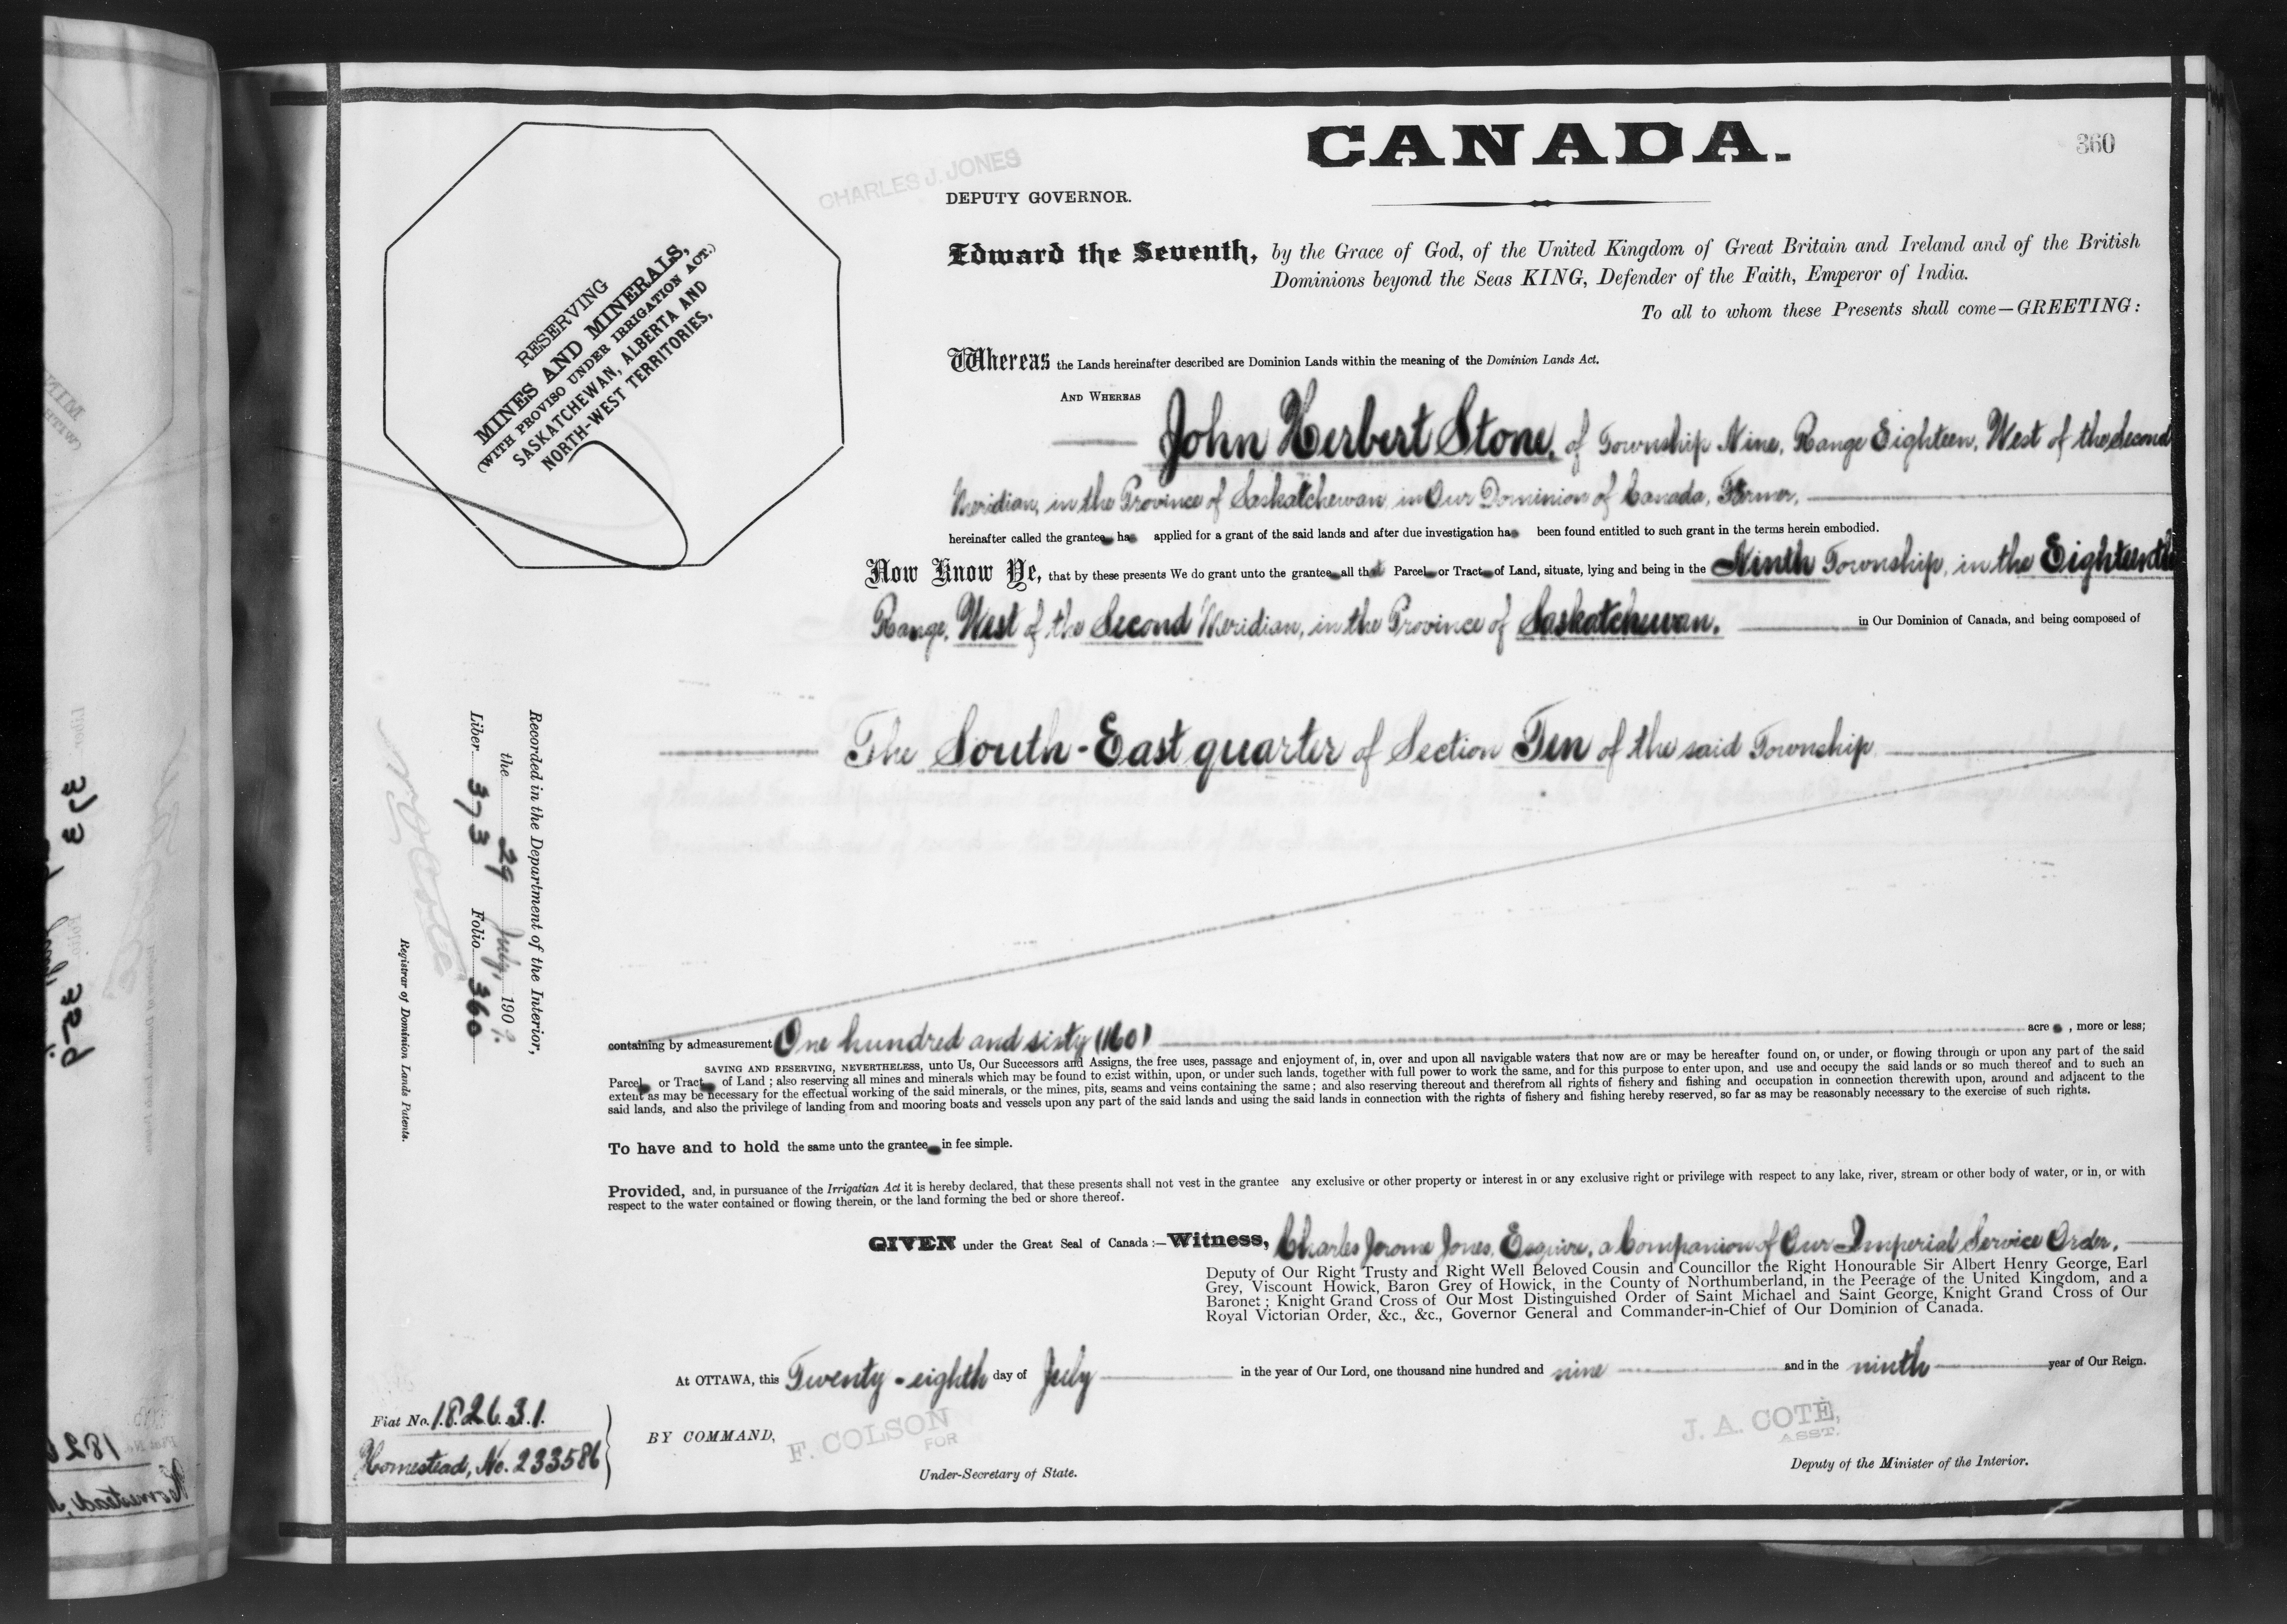 CANADA.
360
CHARLES J. JONES
DEPUTY GOVERNOR.
RESERVING
MINES AND MINERALS,
(WITH PROVISO UNDER IRRIGATION ACT.)
SASKATCHEWAN, ALBERTA AND
NORTH-WEST TERRITORIES,
Edward the Seventh, by the Grace of God, of the United Kingdom of Great Britain and Ireland and of the British
Dominions beyond the Seas KING, Defender of the Faith, Emperor of India.
To all to whom these Presents shall come—GREETING:
Whereas the Lands hereinafter described are Dominion Lands within the meaning of the Dominion Lands Act.
AND WHEREAS
John Herbert Stone, of Township Nine, Range Eighteen, West of the Second
Meridian, in the Province of Saskatchewan, in Our Dominion of Canada, Farmer,
hereinafter called the grantee has applied for a grant of the said lands and after due investigation has been found entitled to such grant in the terms herein embodied.
Now Know Ye, that by these presents We do grant unto the grantee all that Parcel or Tract of Land, situate, lying and being in the Ninth Township, in the Eighteenth
Range, West of the Second Meridian, in the Province of Saskatchewan, in Our Dominion of Canada, and being composed of
The South-East quarter of Section Ten of the said Township
Recorded in the Department of the Interior,
the 29 July, 1909.
Liber 373 Folio 360
Registrar of Dominion Lands Patents.
containing by admeasurement One hundred and sixty (160) acres, more or less;
SAVING AND RESERVING, NEVERTHELESS, unto Us, Our Successors and Assigns, the free uses, passage and enjoyment of, in, over and upon all navigable waters that now are or may be hereafter found on, or under, or flowing through or upon any part of the said
Parcel or Tract of Land; also reserving all mines and minerals which may be found to exist within, upon, or under such lands, together with full power to work the same, and for this purpose to enter upon, and use and occupy the said lands or so much thereof and to such an
extent as may be necessary for the effectual working of the said minerals, or the mines, pits, seams and veins containing the same; and also reserving thereout and therefrom all rights of fishery and fishing and occupation in connection therewith upon, around and adjacent to the
said lands, and also the privilege of landing from and mooring boats and vessels upon any part of the said lands and using the said lands in connection with the rights of fishery and fishing hereby reserved, so far as may be reasonably necessary to the exercise of such rights.
To have and to hold the same unto the grantee in fee simple.
Provided, and, in pursuance of the Irrigatian Act it is hereby declared, that these presents shall not vest in the grantee any exclusive or other property or interest in or any exclusive right or privilege with respect to any lake, river, stream or other body of water, or in, or with
respect to the water contained or flowing therein, or the land forming the bed or shore thereof.
GIVEN under the Great Seal of Canada:—Witness, Charles Jerome Jones, Esquire, a Companion of Our Imperial Service Order,
Deputy of Our Right Trusty and Right Well Beloved Cousin and Councillor the Right Honourable Sir Albert Henry George, Earl
Grey, Viscount Howick, Baron Grey of Howick, in the County of Northumberland, in the Peerage of the United Kingdom, and a
Baronet; Knight Grand Cross of Our Most Distinguished Order of Saint Michael and Saint George, Knight Grand Cross of Our
Royal Victorian Order, &c., &c., Governor General and Commander-in-Chief of Our Dominion of Canada.
At OTTAWA, this Twenty-eighth day of July in the year of Our Lord, one thousand nine hundred and nine and in the ninth year of Our Reign.
Fiat No. 182631.
Homestead, No. 233586
BY COMMAND,
F. COLSON
FOR
Under-Secretary of State.
J. A. COTÉ,
ASST.
Deputy of the Minister of the Interior.